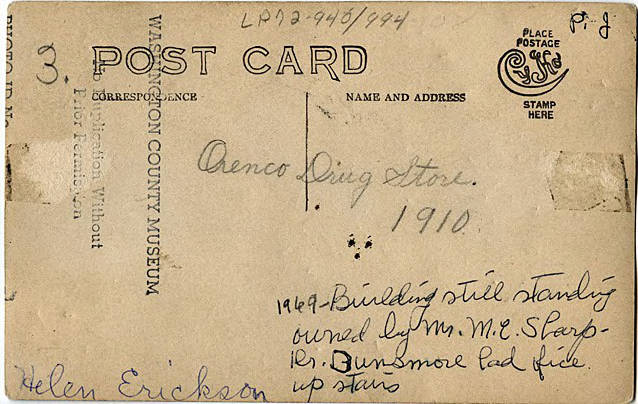 LP72-940/994
P. J
3.
POST CARD
PLACE
POSTAGE
STAMP
HERE
CORRESPONDENCE
NAME AND ADDRESS
WASHINGTON COUNTY MUSEUM
No Duplication Without
Prior Permission
PHOTO ID No
Orenco Drug Store.
1910
1969-Building still standing
owned by Mr. M.E. Sharp-
Dr. Dunsmore had fice
up stairs
Helen Erickson